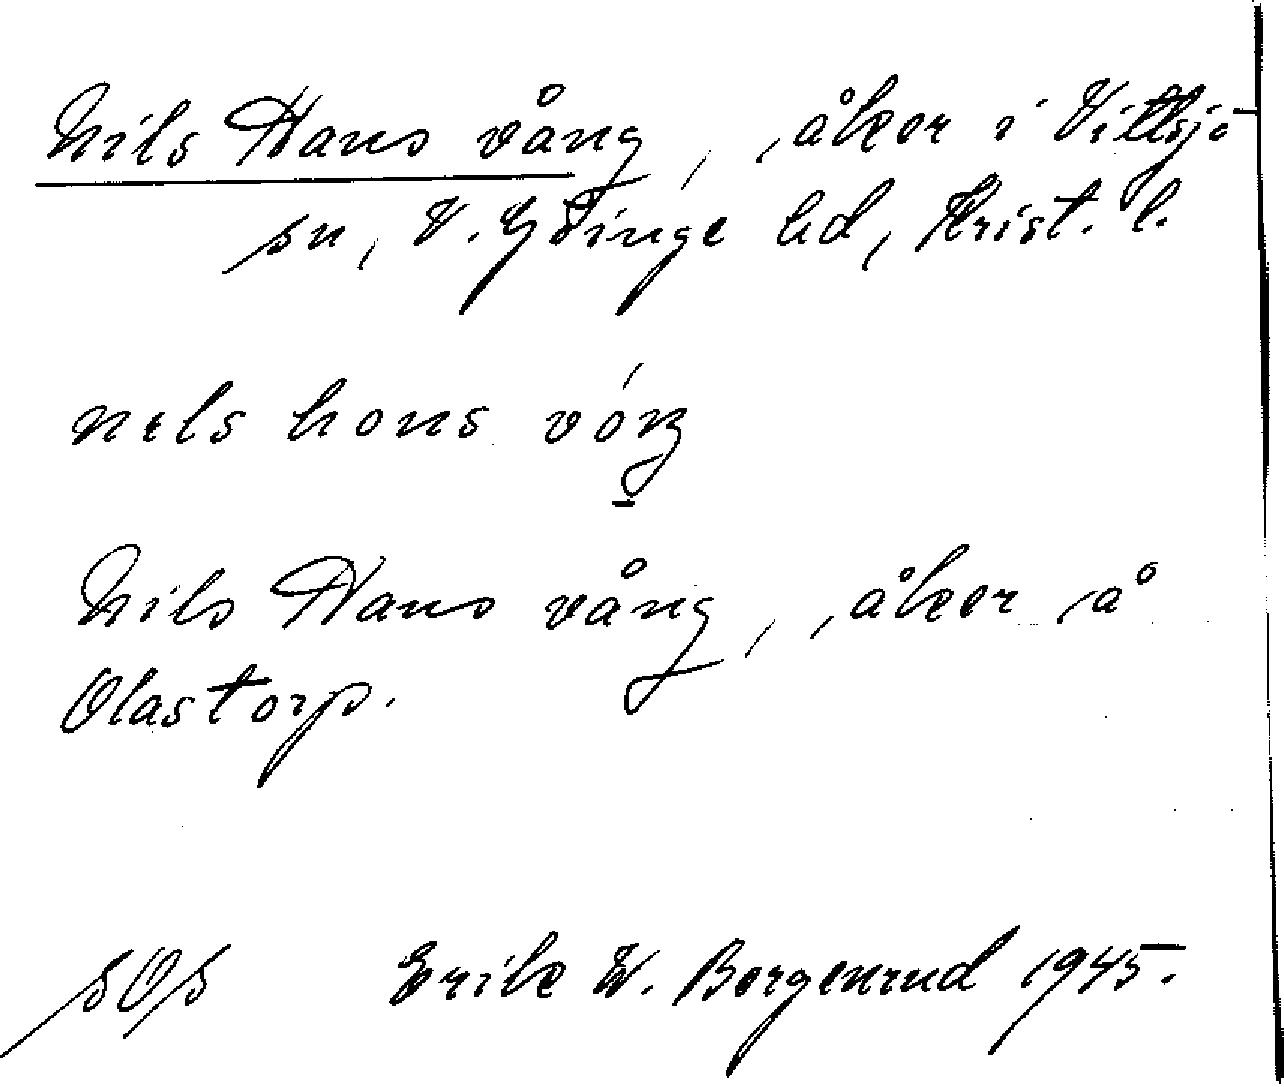 Nils Hans vång, åker i Vittsjö
sn, V. Göinge hd, Krist. l.
nɩls hons vóŋ
Nils Hans vång, åker å
Olastorp.
Erik W. Borgenrud 1945.